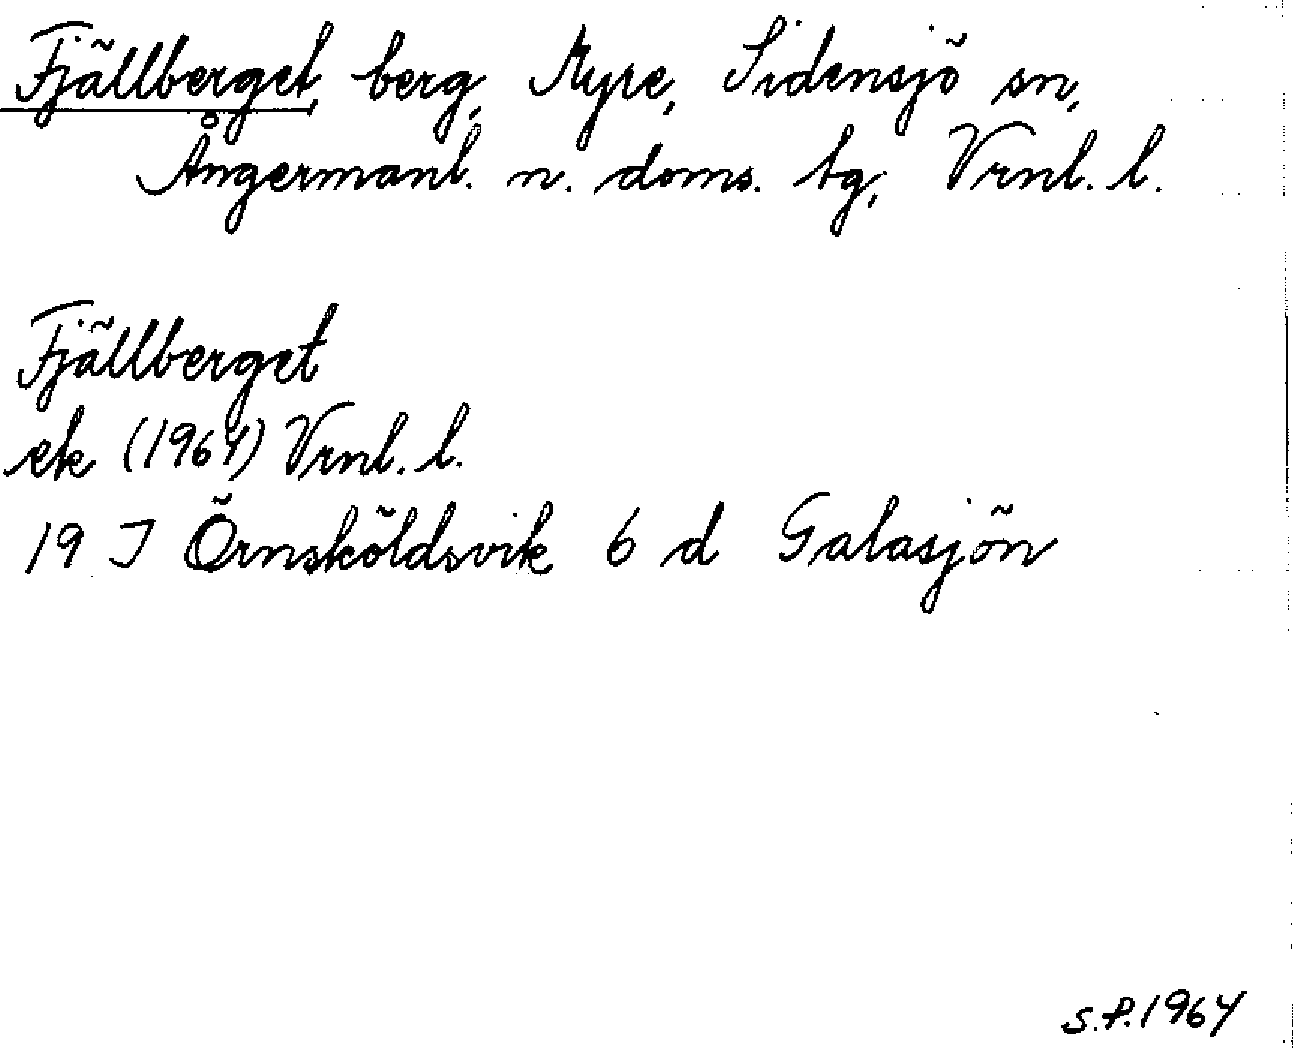 Fjällberget, berg, Myre, Sidensjö sn,
Ångermanl. n. doms. tg, Vrnl. l.
Fjällberget
ek (1964) Vrnl. l.
19 J Örnsköldsvik 6 d Galasjön
S.P. 1964